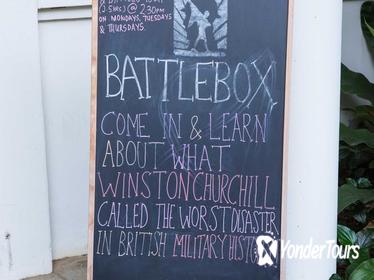 (2.5HRS) @ 2.30PM
ON MONDAYS, TUESDAYS
& THURSDAYS.
BATTLEBOX
COME IN & LEARN
ABOUT WHAT
WINSTON CHURCHILL
CALLED THE WORST DISASTER
IN BRITISH MILITARY HISTORY
YonderTours